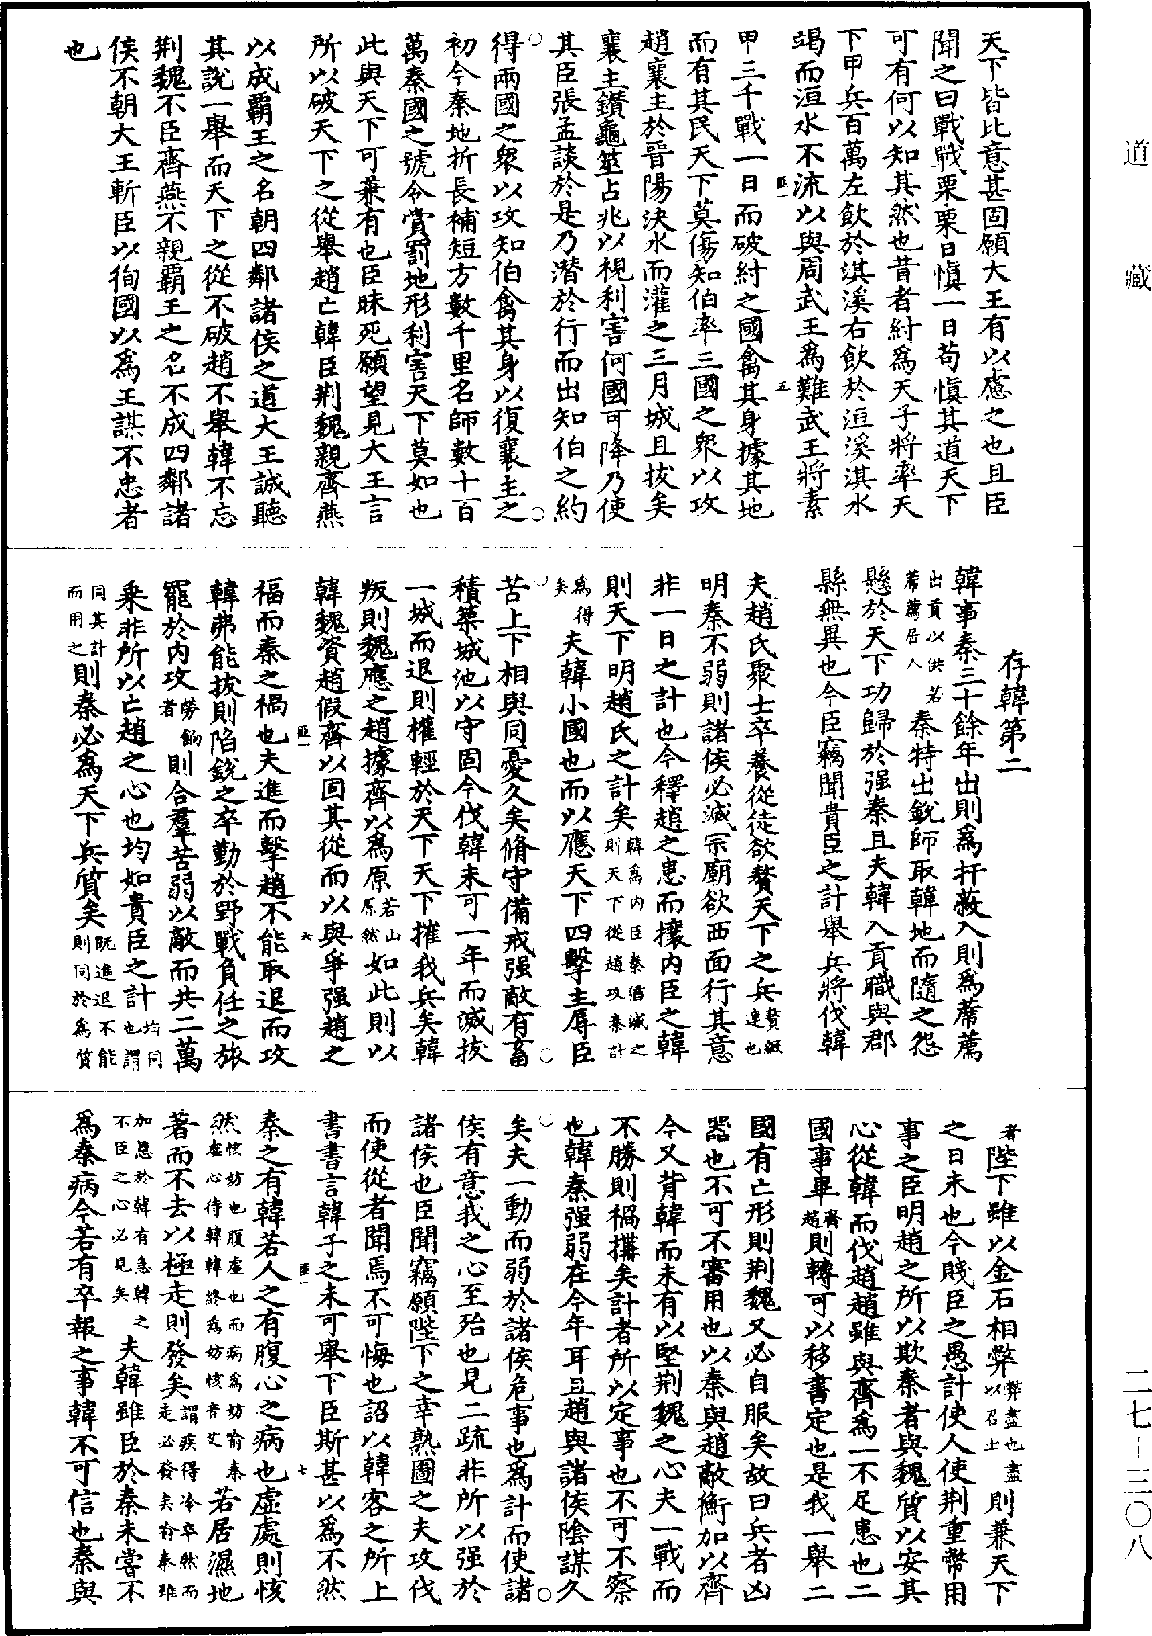 天下皆比意甚固願大王有以慮之也且臣
聞之曰戰戰栗栗日慎一日苟慎其道天下
可有何以知其然也昔者紂為天子將率天
下甲兵百萬左飲於淇溪右飲於洹溪淇水
竭而洹水不流以與周武王為難武王將素
甲三千戰一日而破紂之國禽其身據其地
而有其民天下莫傷知伯率三國之眾以攻
趙襄主於晉陽決水而灌之三月城且拔矣
襄主鑽龜筮占兆以視利害何國可降乃使
其臣張孟談於是乃潛於行而出知伯之約
得兩國之眾以攻知伯禽其身以復襄主之
初今秦地折長補短方數千里名師數十百
萬秦國之號令賞罰地形利害天下莫如也
此與天下可兼有也臣昧死願望見大王言
所以破天下之從舉趙亡韓臣荆魏親齊燕
以成霸王之名朝四鄰諸侯之道大王誠聽
其說一舉而天下之從不破趙不舉韓不忘
荆魏不臣齊燕不親霸王之名不成四鄰諸
侯不朝大王斬臣以徇國以為王謀不忠者
也
存韓第二
韓事秦三十餘年出則為扞蔽入則為蓆薦
出貢以供若蓆薦居人秦特出銳師取韓地而隨之怨
懸於天下功歸於强秦且夫韓入貢職與郡
縣無異也今臣竊聞貴臣之計舉兵將伐韓
夫趙氏聚士卒養從徒欲贅天下之兵贅綴連也
明秦不弱則諸侯必滅宗廟欲西面行其意
非一日之計也今釋趙之患而攘内臣之韓
則天下明趙氏之計矣韓為内臣秦猶滅之則天下從趙攻秦計
為得矣夫韓小國也而以應天下四擊主辱臣
苦上下相與同憂久矣脩守備戒强敵有畜
積築城池以守固今伐韓未可一年而滅拔
一城而退則權輕於天下天下摧我兵矣韓
叛則魏應之趙據齊以為原若山原然如此則以
韓魏資趙假齊以固其從而以與爭强趙之
福而秦之禍也夫進而擊趙不能取退而攻
韓弗能拔則陷銳之卒勤於野戰負任之旅
罷於内攻勞餉者則合羣苦弱以敵而共二萬
乘非所以亡趙之心也均如貴臣之計均同也謂
同其計而用之則秦必為天下兵質矣既進退不能則同於為質
者陛下雖以金石相弊弊盡也盡以召士則兼天下
之日未也今賤臣之愚計使人使荆重幣用
事之臣明趙之所以欺秦者與魏質以安其
心從韓而伐趙趙雖與齊為一不足患也二
國事畢齊趙則韓可以移書定也是我一舉二
國有亡形則荆魏又必自服矣故曰兵者凶
器也不可不審用也以秦與趙敵衡加以齊
今又背韓而未有以堅荆魏之心夫一戰而
不勝則禍搆矣計者所以定事也不可不察
也韓秦强弱在今年耳且趙與諸侯陰謀久
矣夫一動而弱於諸侯危事也為計而使諸
侯有意我之心至殆也見二疏非所以强於
諸侯也臣聞竊願陛下之幸熟圖之夫攻伐
而使從者聞焉不可悔也詔以韓客之所上
書書言韓子之未可舉下臣斯甚以為不然
秦之有韓若人之有腹心之病也虛處則㤥
然㤥妨也腹虛也而病為妨喻秦虛心待韓韓終為妨㤥音艾若居濕地
著而不去以極走則發矣謂疾得冷卒然而走必發矣喻秦雖
加恩於韓有急韓之不臣之心必見矣夫韓雖臣於秦未嘗不
為秦病今若有卒報之事韓不可信也秦與
道藏
二七－三〇八